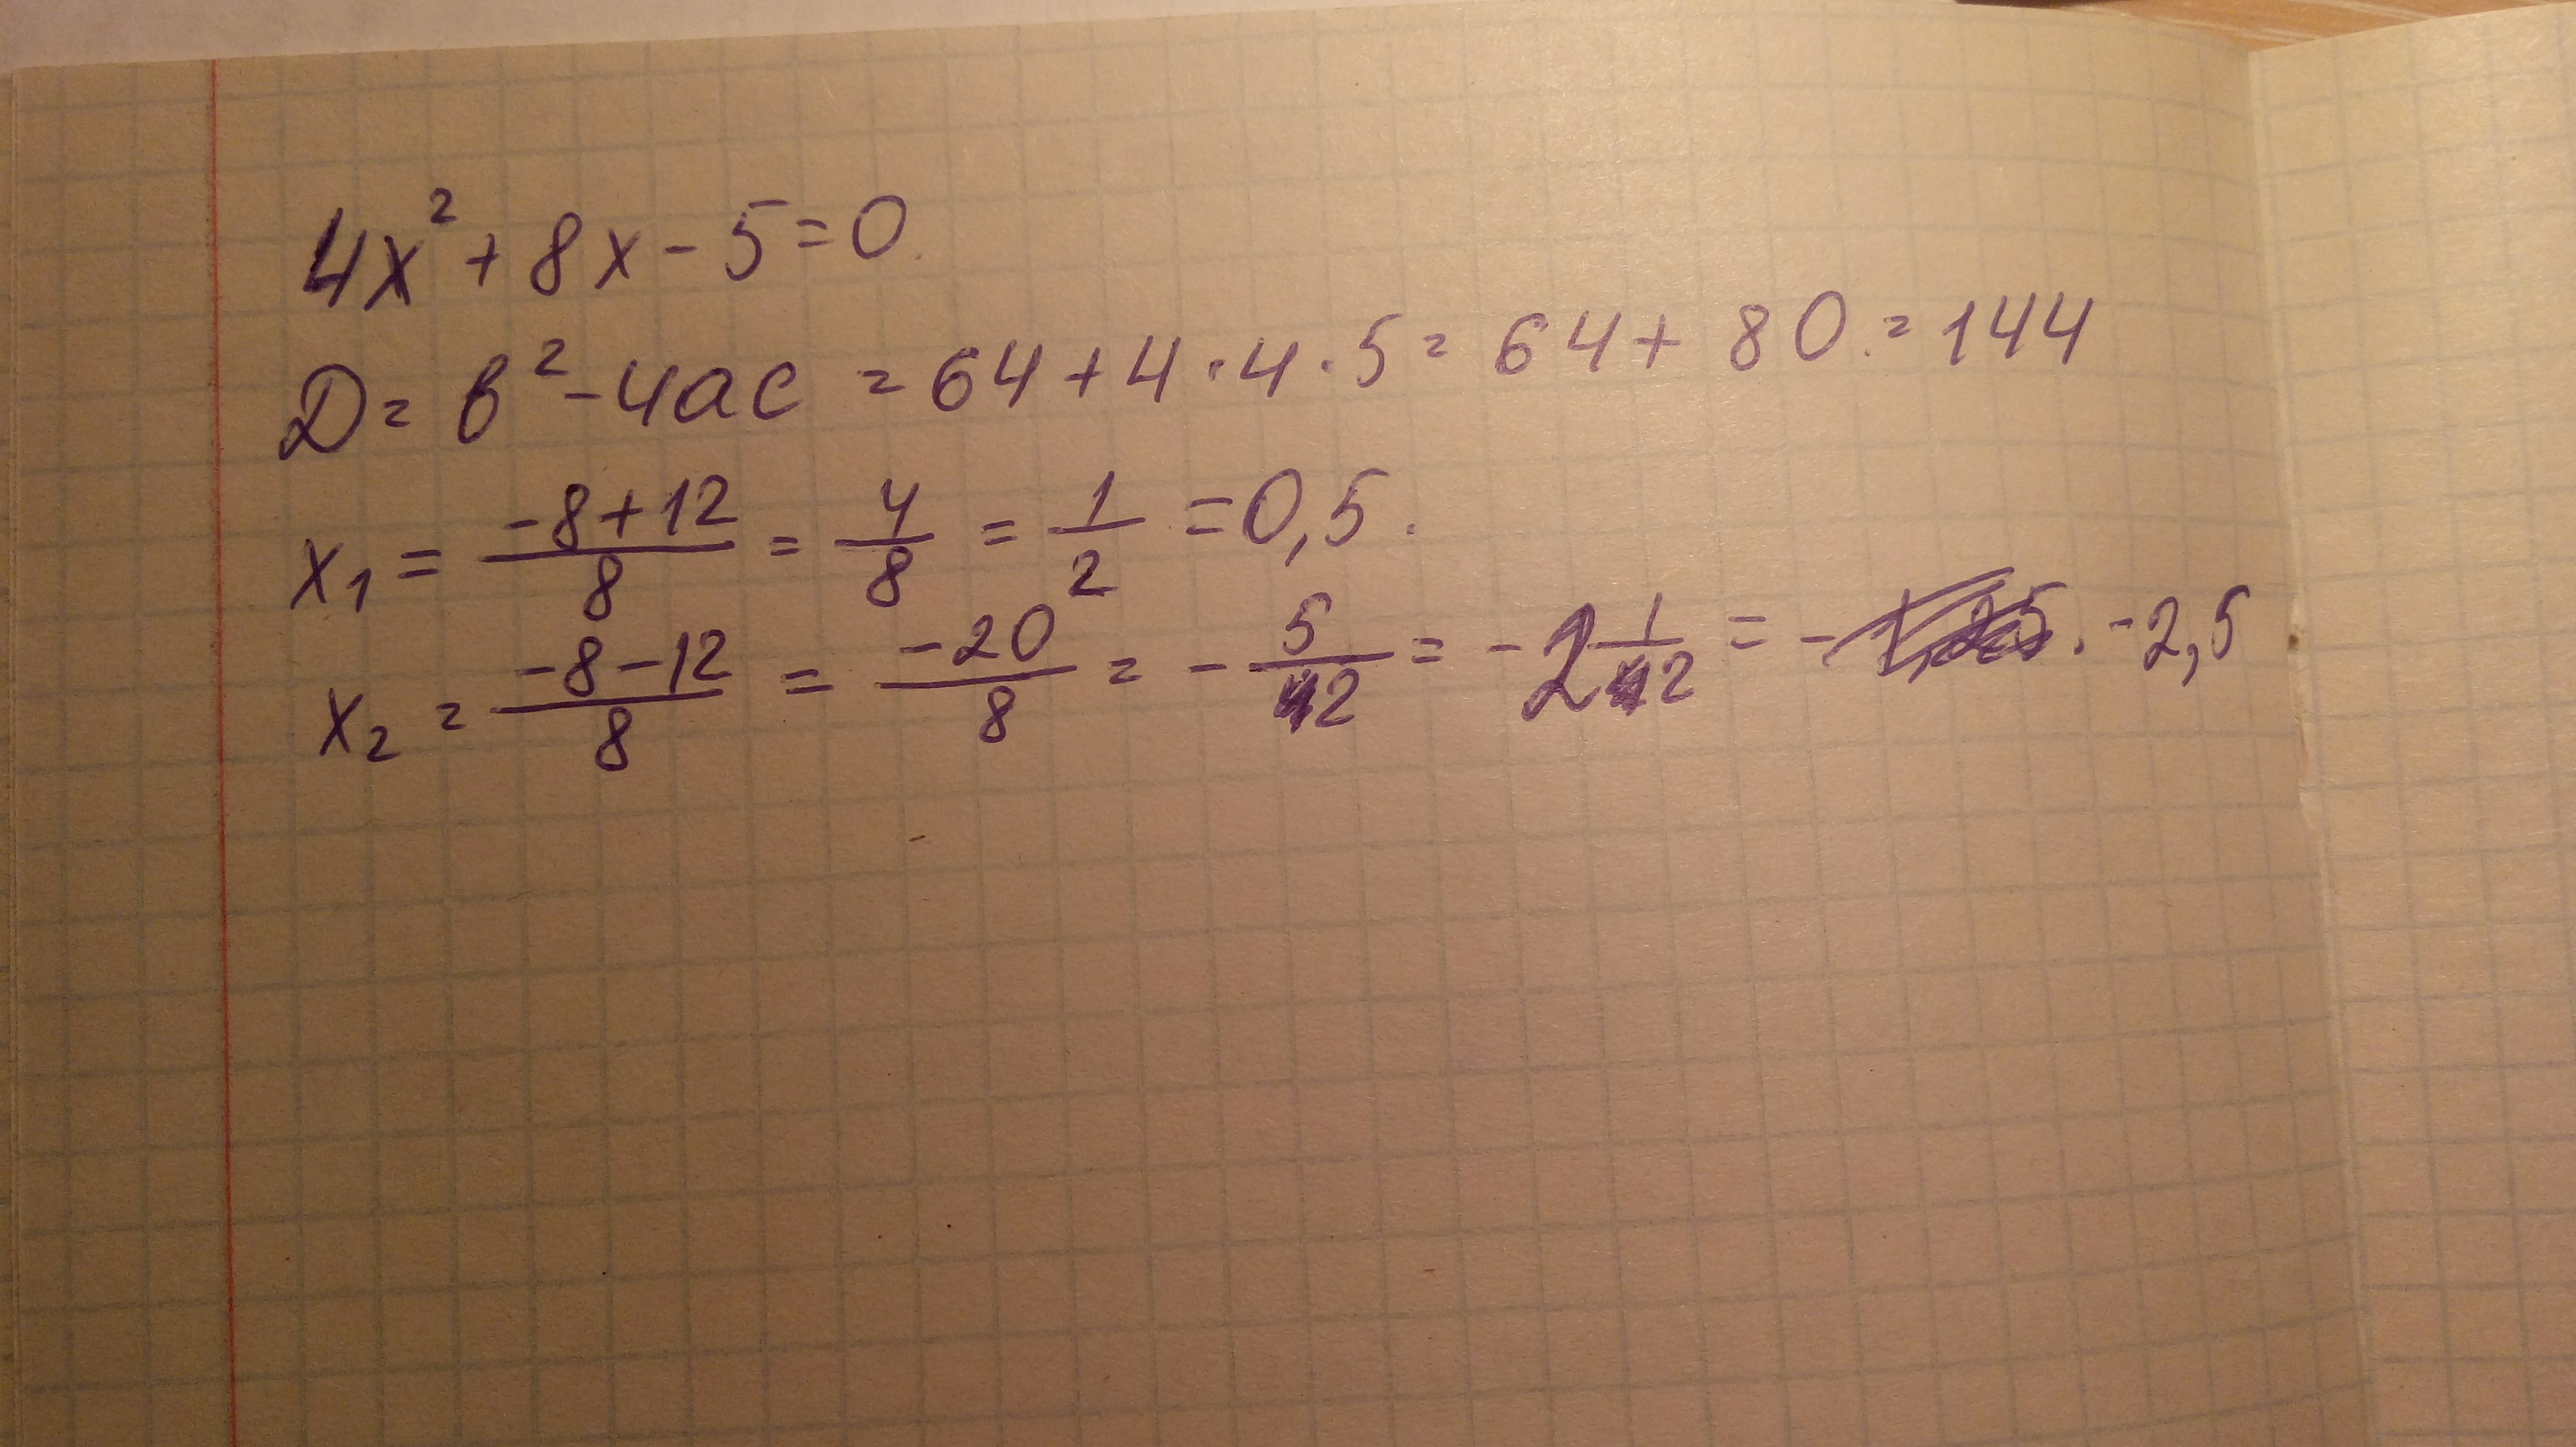 4x² + 8x - 5 = 0.
D = b² - 4ac = 64 + 4 · 4 · 5 = 64 + 80 = 144
x₁ = (-8+12)/8 = 4/8 = 1/2 = 0,5.
x₂ = (-8-12)/8 = -20/8 = - 5/2 = -2 1/2 = - . -2,5